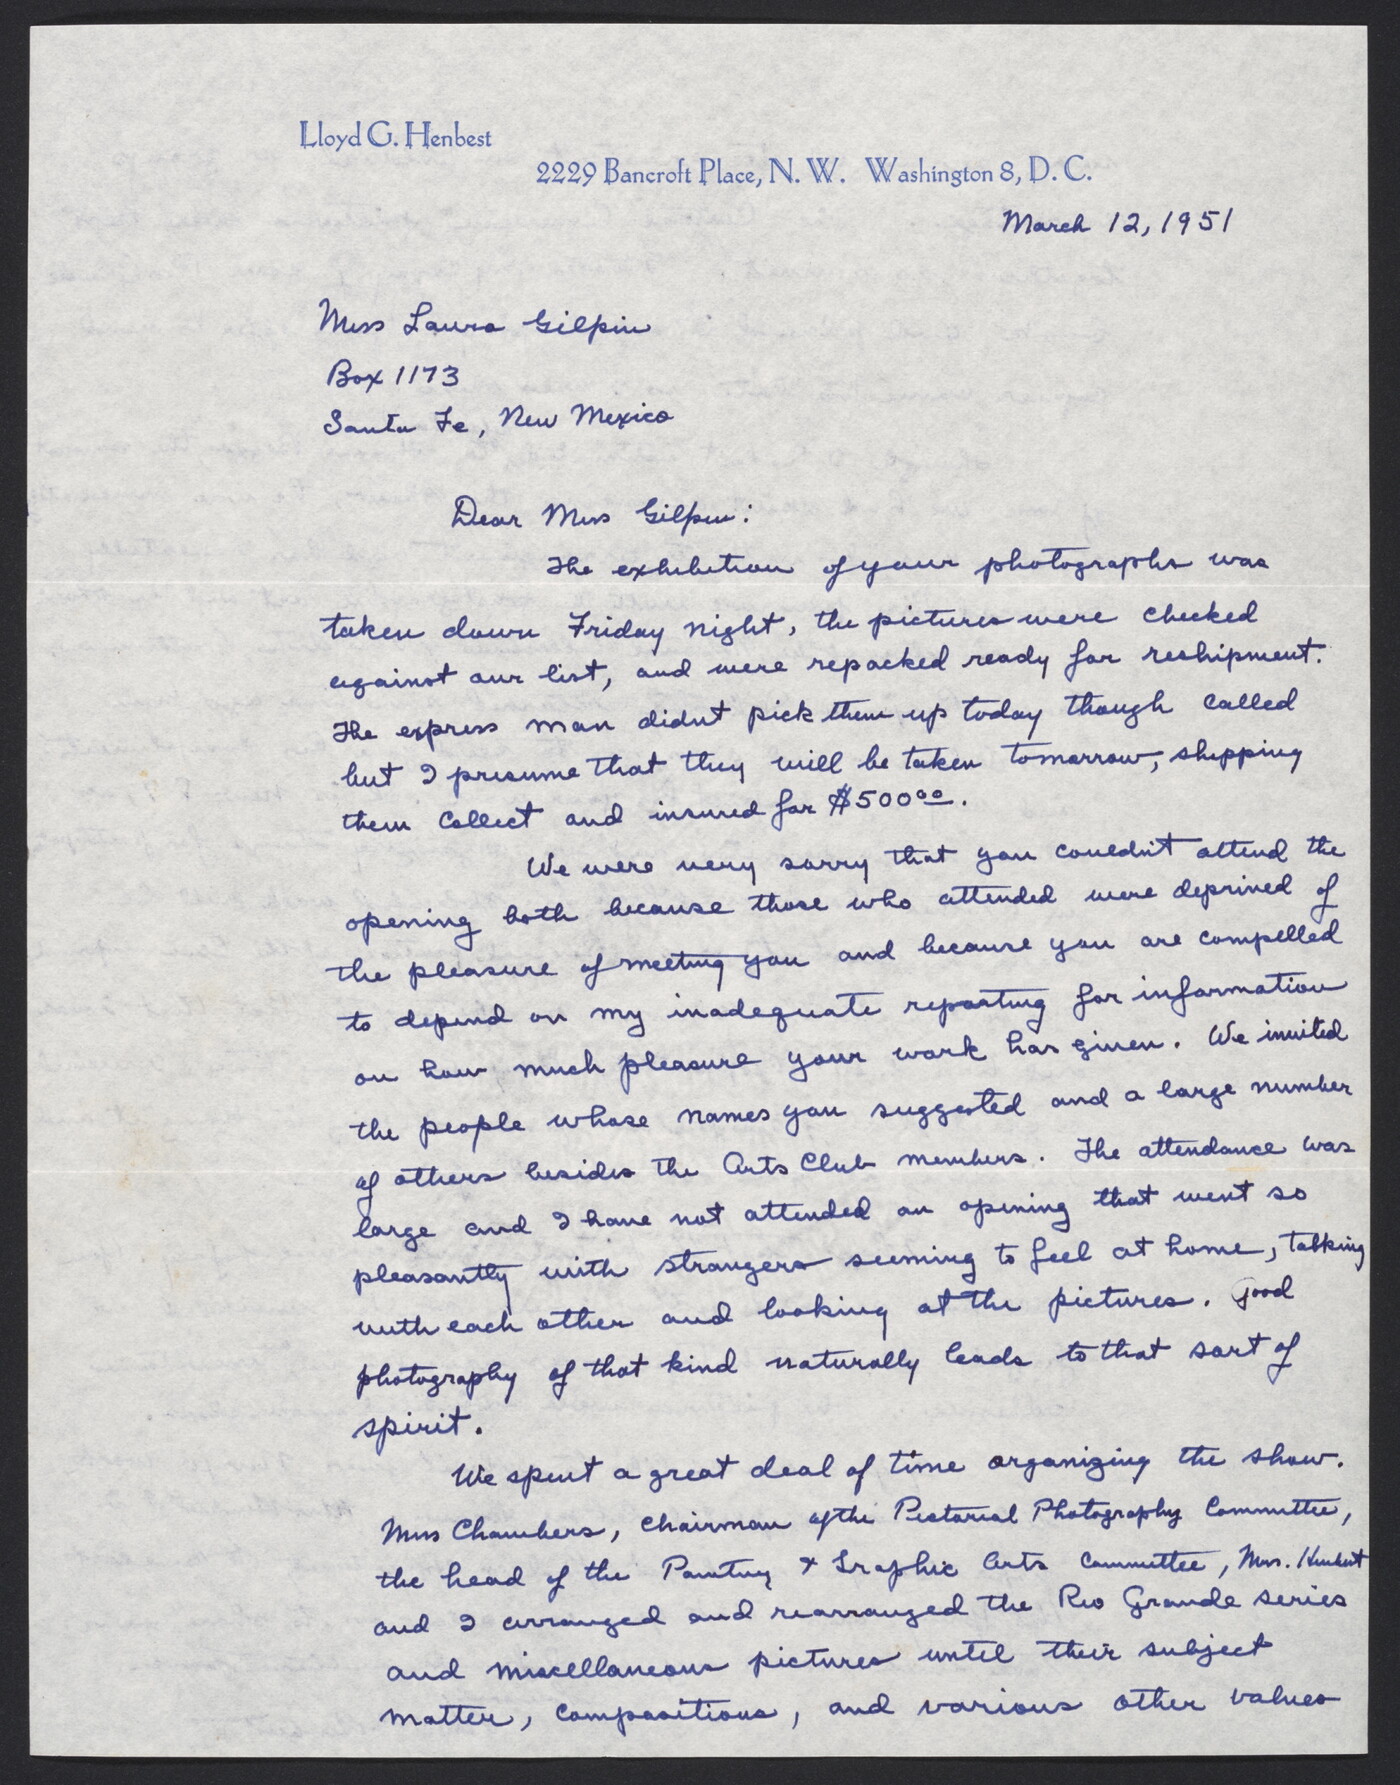 Lloyd G. Henbest
2229 Bancroft Place, N. W. Washington 8, D. C.
March 12, 1951
Miss Laura Gilpin
Box 1173
Santa Fe, New Mexico
Dear Miss Gilpin:
The exhibition of your photographs was
taken down Friday night, the pictures were checked
against our list, and were repacked ready for reshipment.
The express man didnt pick them up today though called
but I presume that they will be taken tomorrow, shipping
them collect and insured for $500.00.
We were very sorry that you couldn't attend the
opening both because those who attended were deprived of
the pleasure of meeting you and because you are compelled
to depend on my inadequate reporting for information
on how much pleasure your work has given. We invited
the people whose names you suggested and a large number
of others besides the Arts Club members. The attendance was
large and I have not attended an opening that went so
pleasantly with strangers seeming to feel at home, talking
with each other and looking at the pictures. Good
photography of that kind naturally leads to that sort of
spirit.
We spent a great deal of time organizing the show.
Miss Chambers, Chairman of the Pictorial Photography Committee,
the head of the Painting & Graphic Arts Committee, Mrs. Henbest
and I arranged and rearranged the Rio Grande series
and miscellaneous pictures until their subject
matter, compositions, and various other values